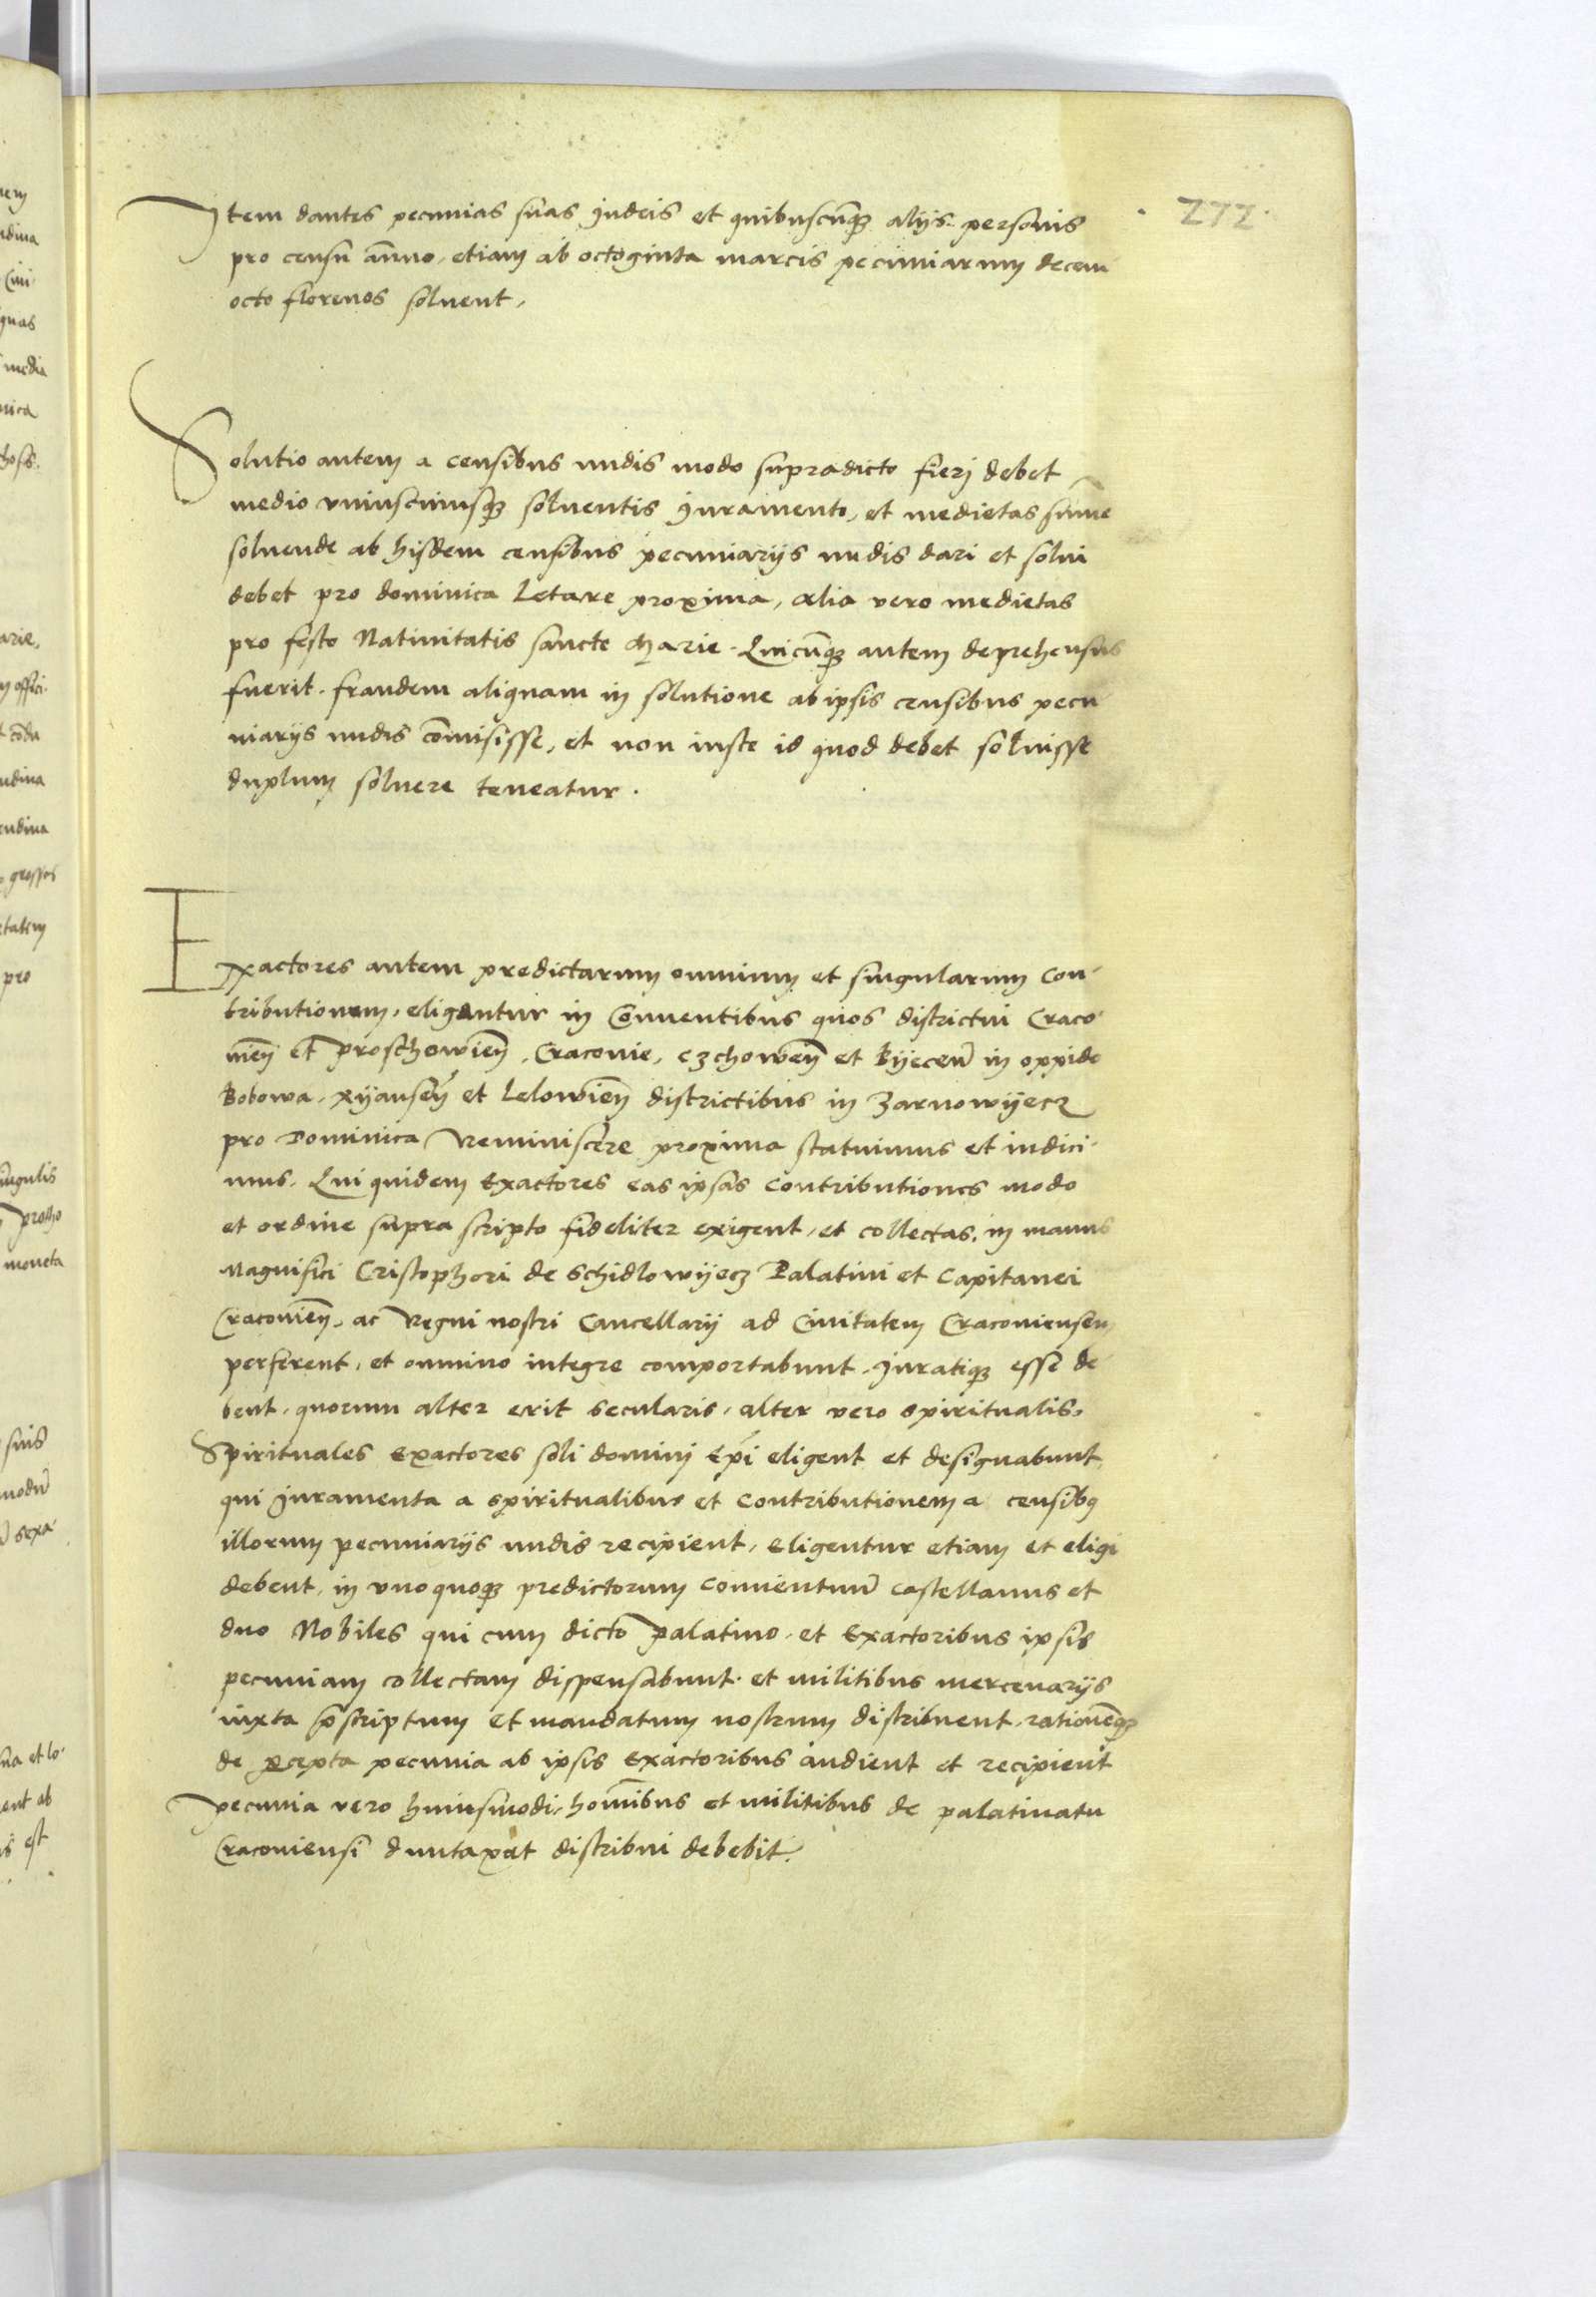 277.
Item dantes pecunias suas Judeis et quibuscũqȝ alijs personis
pro censu ãnno, etiam ab octoginta marcis pecuniarum decem
octo florenos soluent,
Solutio autem a censibus nudis modo supradicto fierj debet
medio vniuscuiusqȝ soluentis Juramento, et medietas sũme
soluende ab hisdem censibus pecuniarijs nudis dari et solui
debet pro dominica Letare proxima, alia vero medietas
pro festo Natiuitatis sancte Marie. Quicũqȝ autem deprehensus
fuerit. fraudem aliquam in solutione ab ipsis censibus pecu
niarijs nudis cõmisisse, et non iuste id quod debet soluisse
duplum soluere teneatur.
Exactores autem predictarum omnium et singularum Con-
tributionum, eligantur in Cõnuentibus quos districtui Craco
uieñ et proschowieñ, Craconie, Czchoweñ et Byeceñ in oppido
Bobowa, xyanseñ et Lelowieñ districtibus in Zarnowyecz
pro Dominica Reminiscere proxima statuimus et indici-
mus. Qui quidem Exactores eas ipsas Contributiones modo
et ordine supra scripto fideliter exigent, et collectas, in manus
Magnifici Cristophori de Schidlowyecz Palatini et Capitanei
Cracouieñ, ac Regni nostri Cancellarij ad Ciuitatem Cracouiensem,
perferent, et omnino integre comportabunt, Juratiqȝ esse de
bent, quorum alter erit secularis, alter vero spiritualis,
Spirituales Exactores soli dominj Ep̃i eligent et designabunt
qui Juramenta a spiritualibus et Contributionem a censibꝫ
illorum pecuniarijs nudis recipient, Eligentur etiam et eligi
debent, in vnoquoqȝ predictorum Conuentuũ Castellanus et
duo Nobiles qui cum dicto palatino, et Exactoribus ipsis
pecuniam collectam dispensabunt. et militibus mercenarijs
iuxta p̃scriptum et mandatum nostrum distribuent, rationẽqȝ
de ꝑcepta pecunia ab ipsis Exactoribus audient et recipient
pecunia vero huiusmodi, hoĩnibus et militibus de palatinatu
Cracouiensi duntaxat distribui debebit.